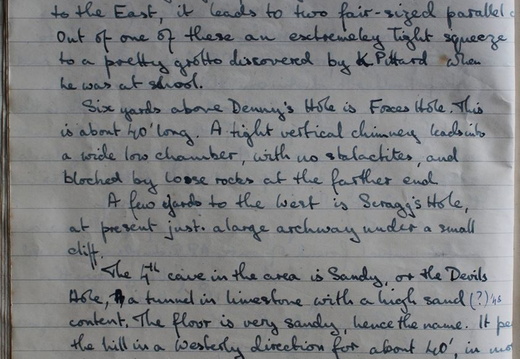 to the East, it leads to two fair-sized parallel
Out of one of these an extremeley tight squeeze
to a pretty grotto discovered by K Pittard when
he was at school.
Six yards above Denny's Hole is Foxes Hole. This
is about 40' long. A tight vertical chimney leads into
a wide low chamber, with no stalactites, and
blocked by loose rocks at the farther end
A few yards to the West is Scragg's Hole,
at present just a large archway under a small
cliff.
The 4th cave in the area is Sandy, or the Devils
Hole, a tunnel in limestone with a high sand (?)
content. The floor is very sandy, hence the name. It
the hill in a Westerly direction for about 40' in